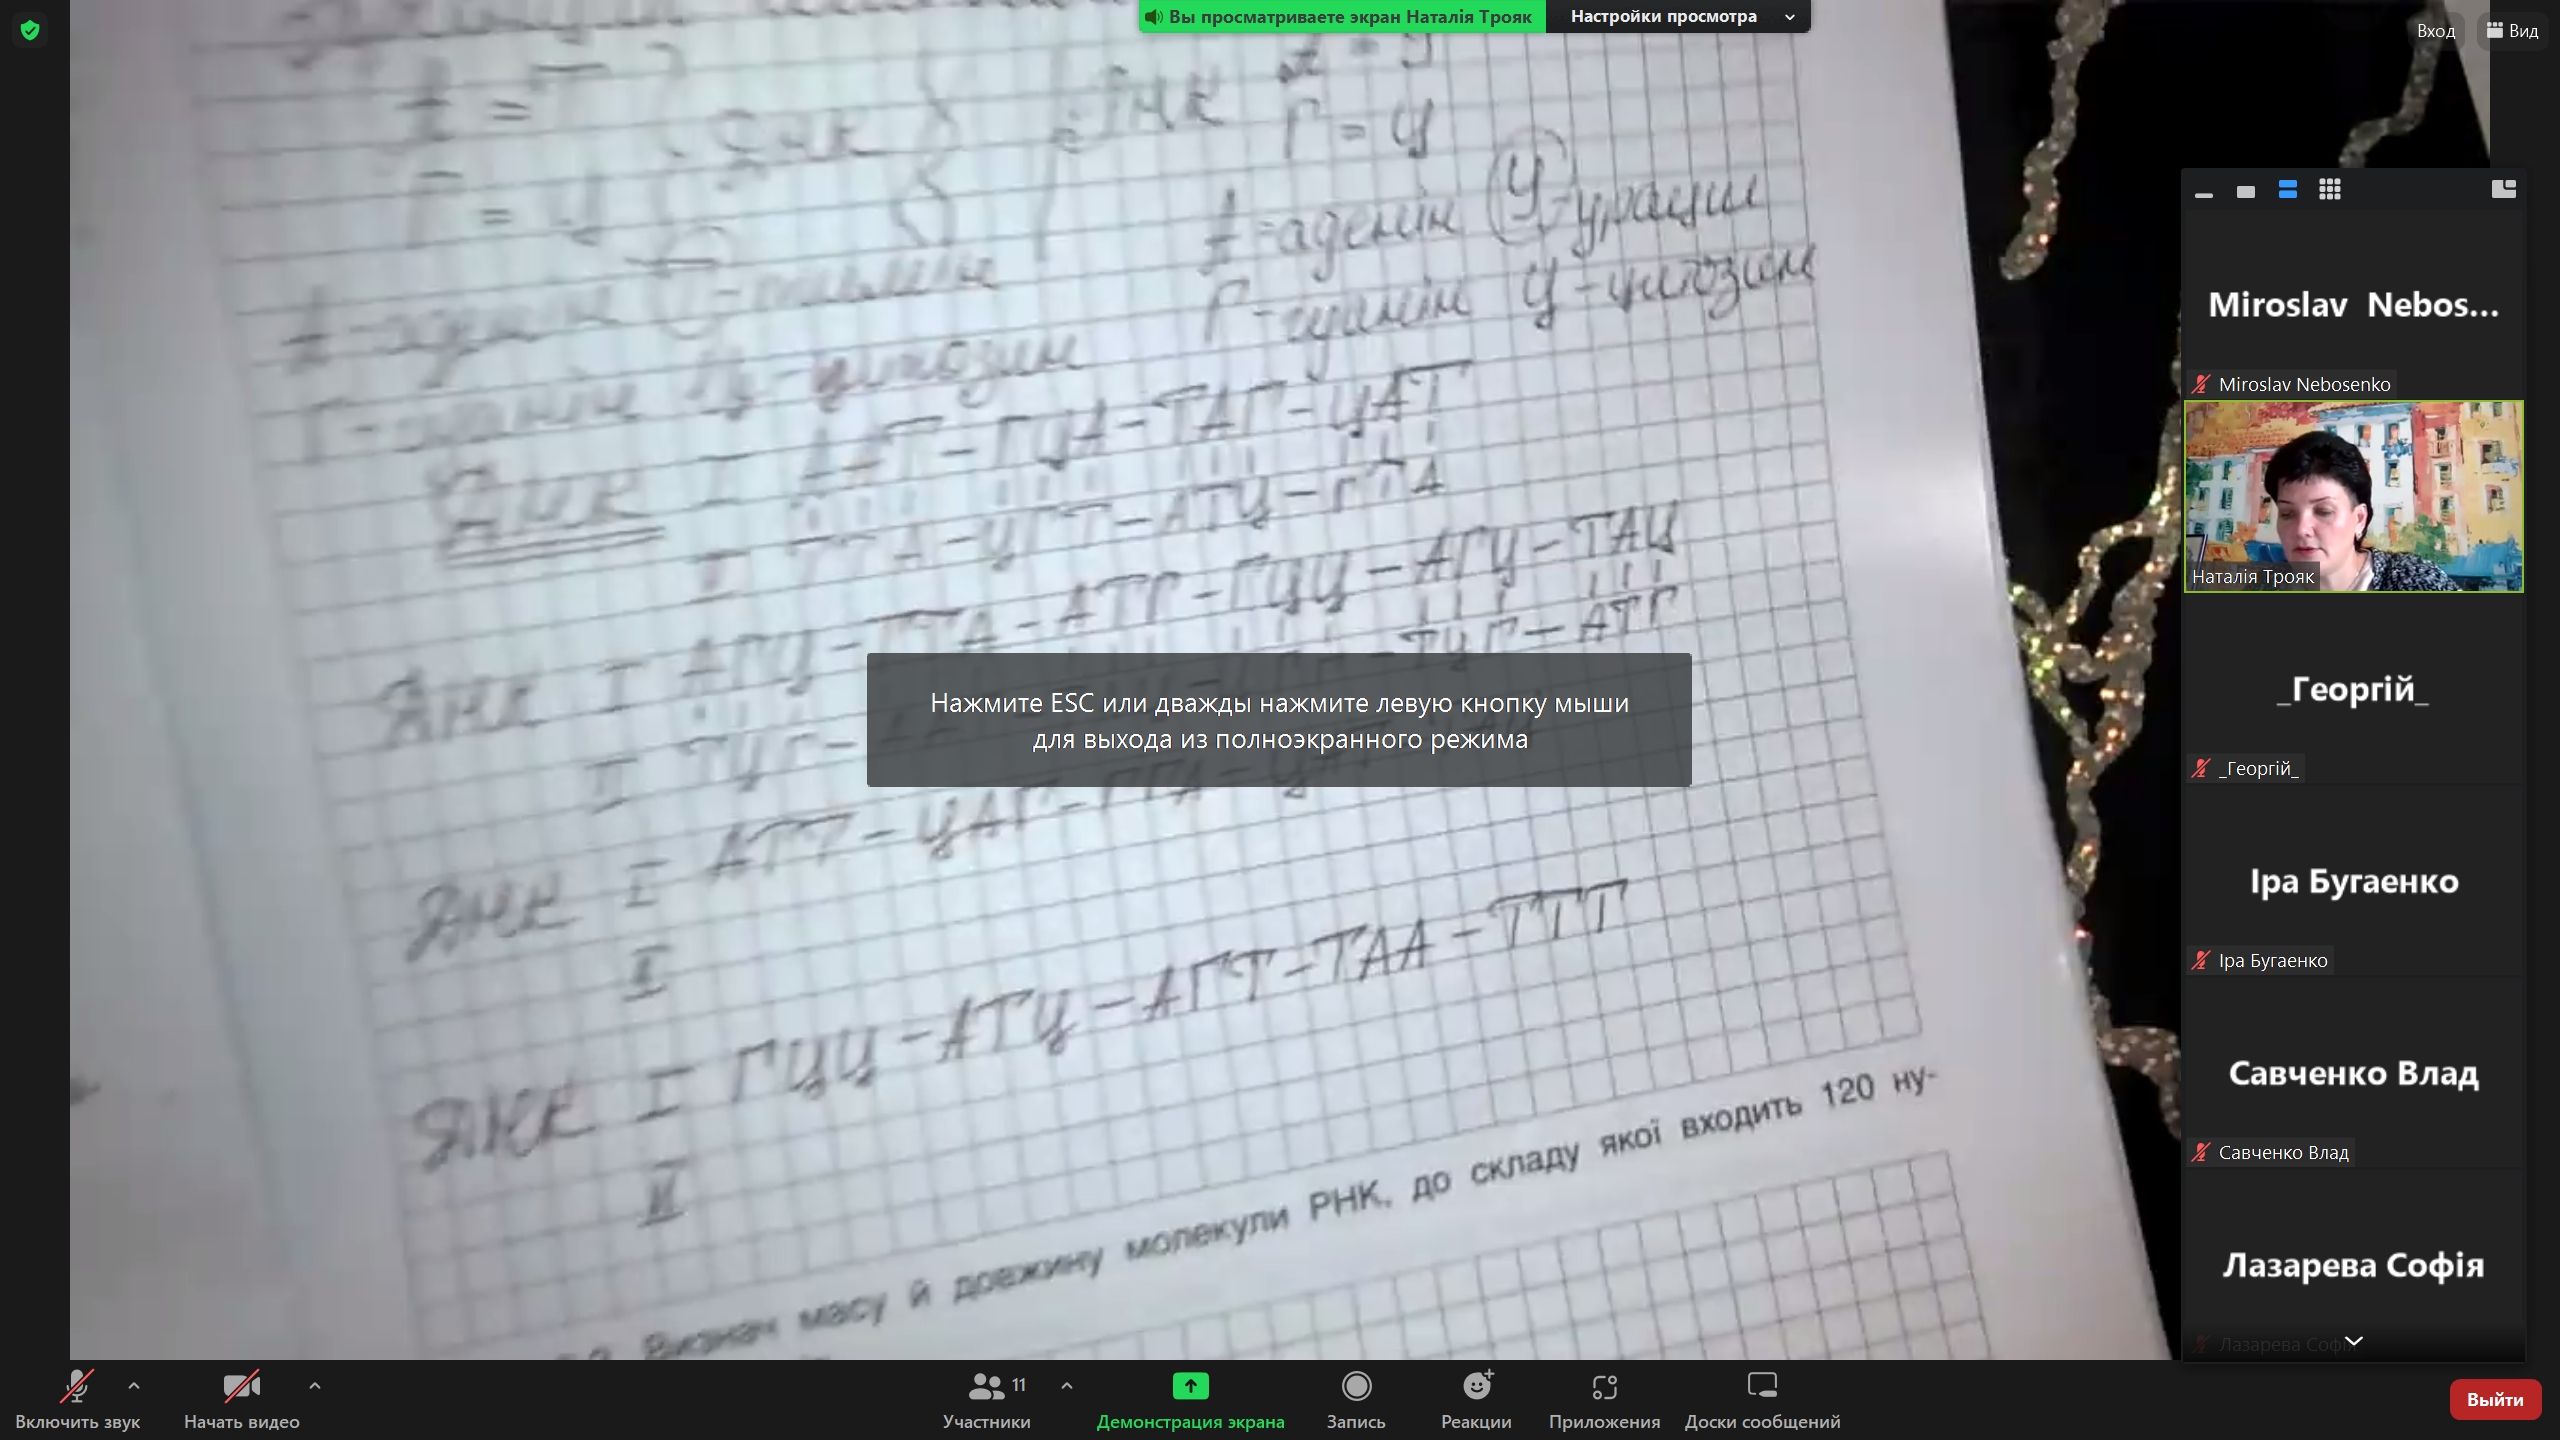 Вы просматриваете экран Наталія Трояк
Настройки просмотра
Вход
Вид
А = Т
Г = Ц
ДНК
РНК
А = У
Г = Ц
А-аденін Т-тимін
Г-гуанін Ц-цитозин
А-аденін У-урацил
Г-гуанін Ц-цитозин
ДНК I ААТ-ГЦА-ТАГ-ЦАТ
II ТТА-ЦГТ-АТЦ-ГТА
ДНК I АГЦ-ТТА-АТГ-ГЦЦ-АГЦ-ТАЦ
II ТЦГ- -ТЦГ-АТГ
ДНК I АТТ-ЦАГ-ГГА-
II
ДНК I ГЦЦ-АТЦ-АГТ-ТАА-ТТТ
II
Визнач масу й довжину молекули РНК, до складу якої входить 120 ну-
Нажмите ESC или дважды нажмите левую кнопку мыши
для выхода из полноэкранного режима
Miroslav Nebos...
Miroslav Nebosenko
Наталія Трояк
_Георгій_
_Георгій_
Іра Бугаенко
Іра Бугаенко
Савченко Влад
Савченко Влад
Лазарева Софія
Лазарева Софія
Включить звук
Начать видео
11
Участники
Демонстрация экрана
Запись
Реакции
Приложения
Доски сообщений
Выйти